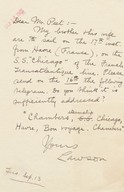 Dear Mr. Peet :—
My brother & his wife
are to sail on the 17th inst.
from Havre (France), on the
S.S. "Chicago" of the French
Transatlantique line. Please
send on the 16th the following
telegram. Do you think it is
sufficiently addressed?
"Chambers, S.S. Chicago,
Havre, Bon voyage, Chambers"
Yours
Lawson